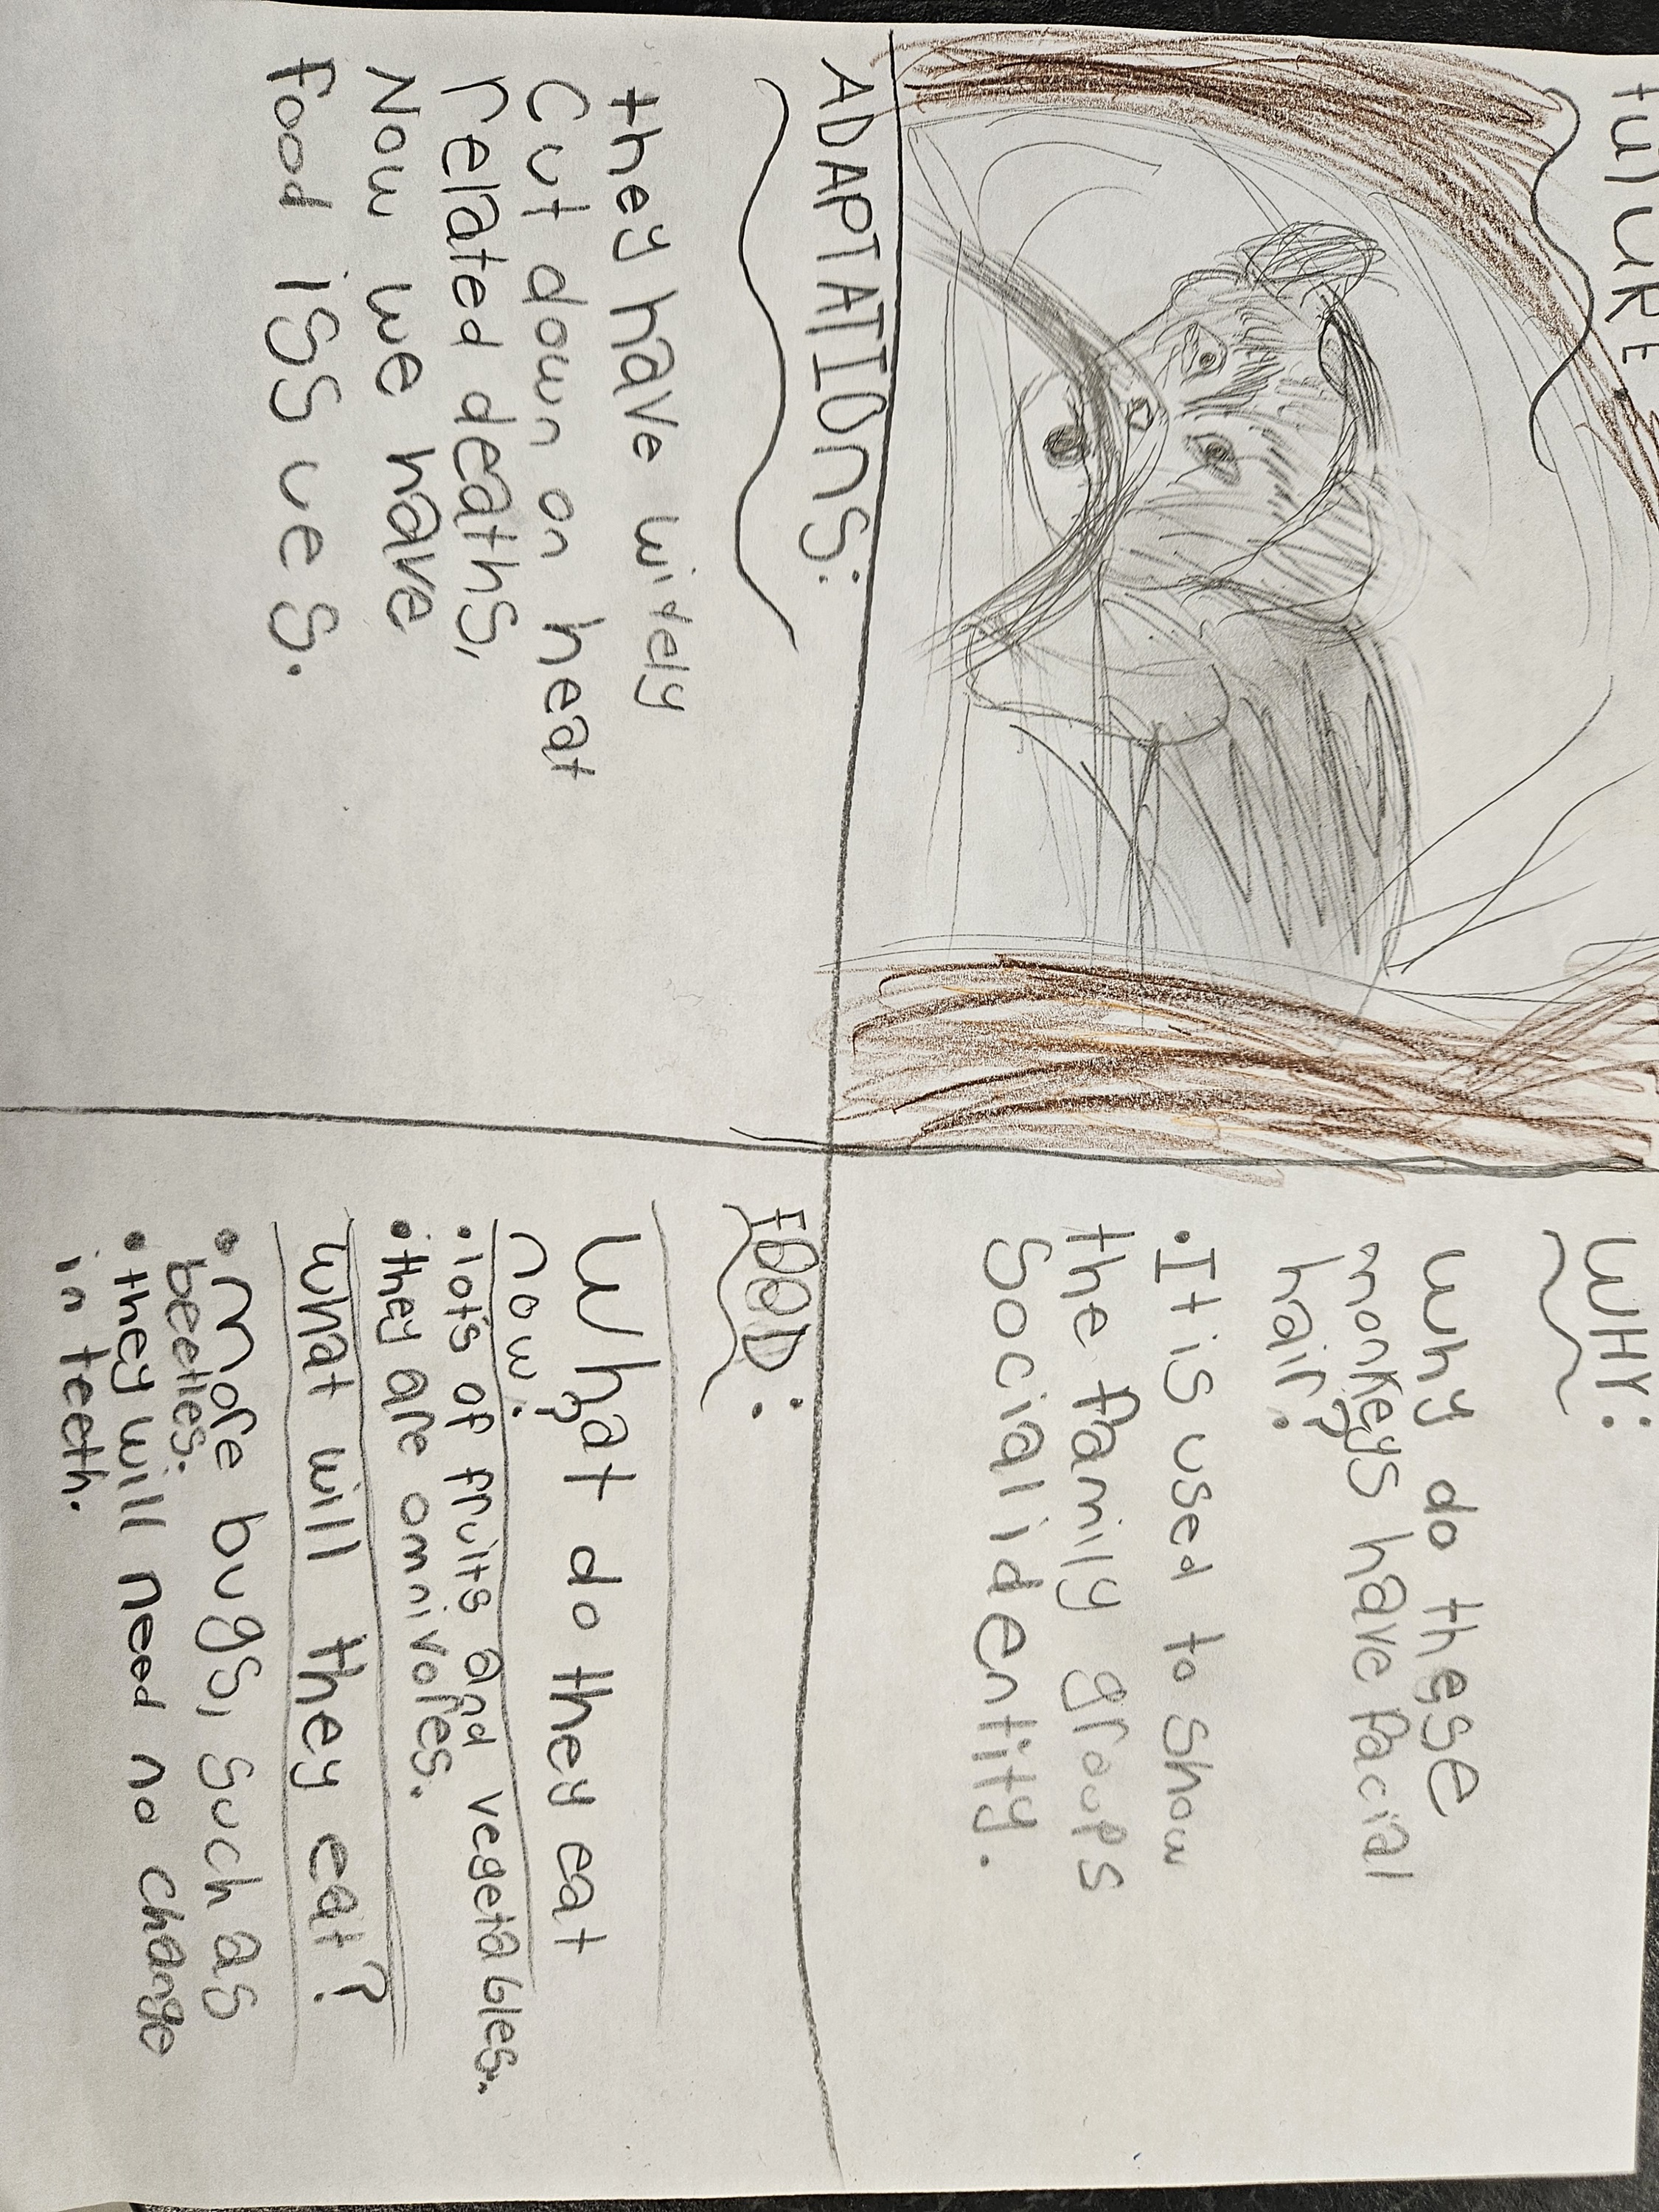 FUTURE.
WHY:
Why do these
monkeys have facial
hair?
• It is used to show
the family groups
social identity.
ADAPTATIONS:
they have widely
cut down on heat
related deaths,
Now we have
food issues.
FOOD:
What do they eat
now?
• lots of fruits and vegetables.
• they are omnivores.
What will they eat?
• More bugs, such as
beetles.
• they will need no change
in teeth.